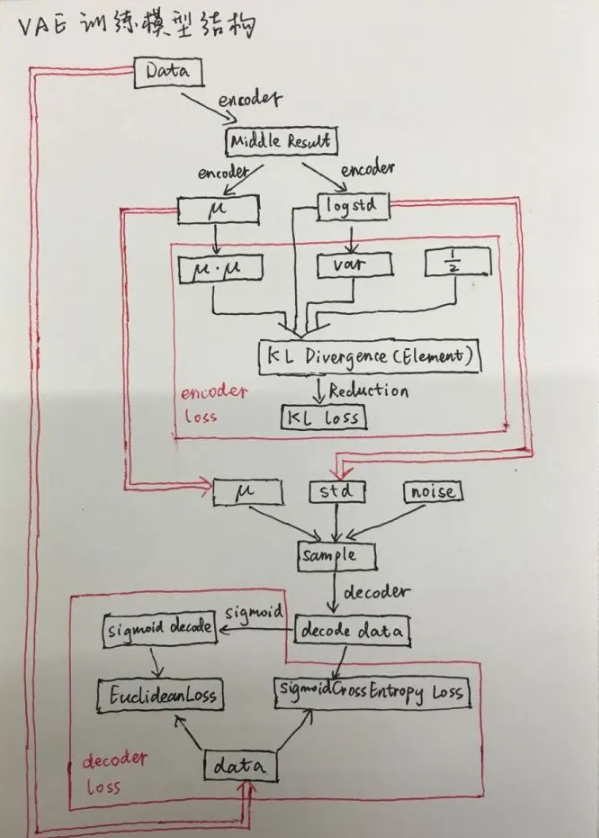 VAE 训练模型结构
Data
encoder
Middle Result
encoder
encoder
μ
logstd
μ·μ
var
1/2
KL Divergence (Element)
Reduction
encoder
loss
KL Loss
μ
std
noise
sample
decoder
sigmoid
sigmoid decode
decode data
EuclideanLoss
SigmoidCrossEntropy Loss
decoder
loss
data